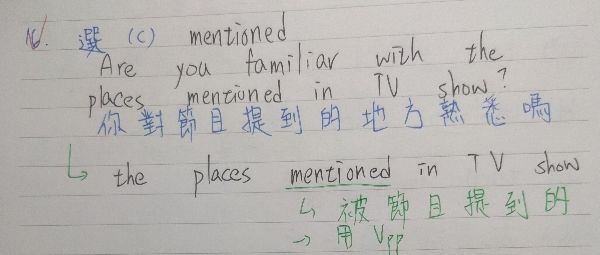 16. 選 (C) mentioned
Are you familiar with the
places mentioned in TV show?
你對節目提到的地方熟悉嗎
↳ the places mentioned in TV show
↳ 被節目提到的
→ 用 Vpp